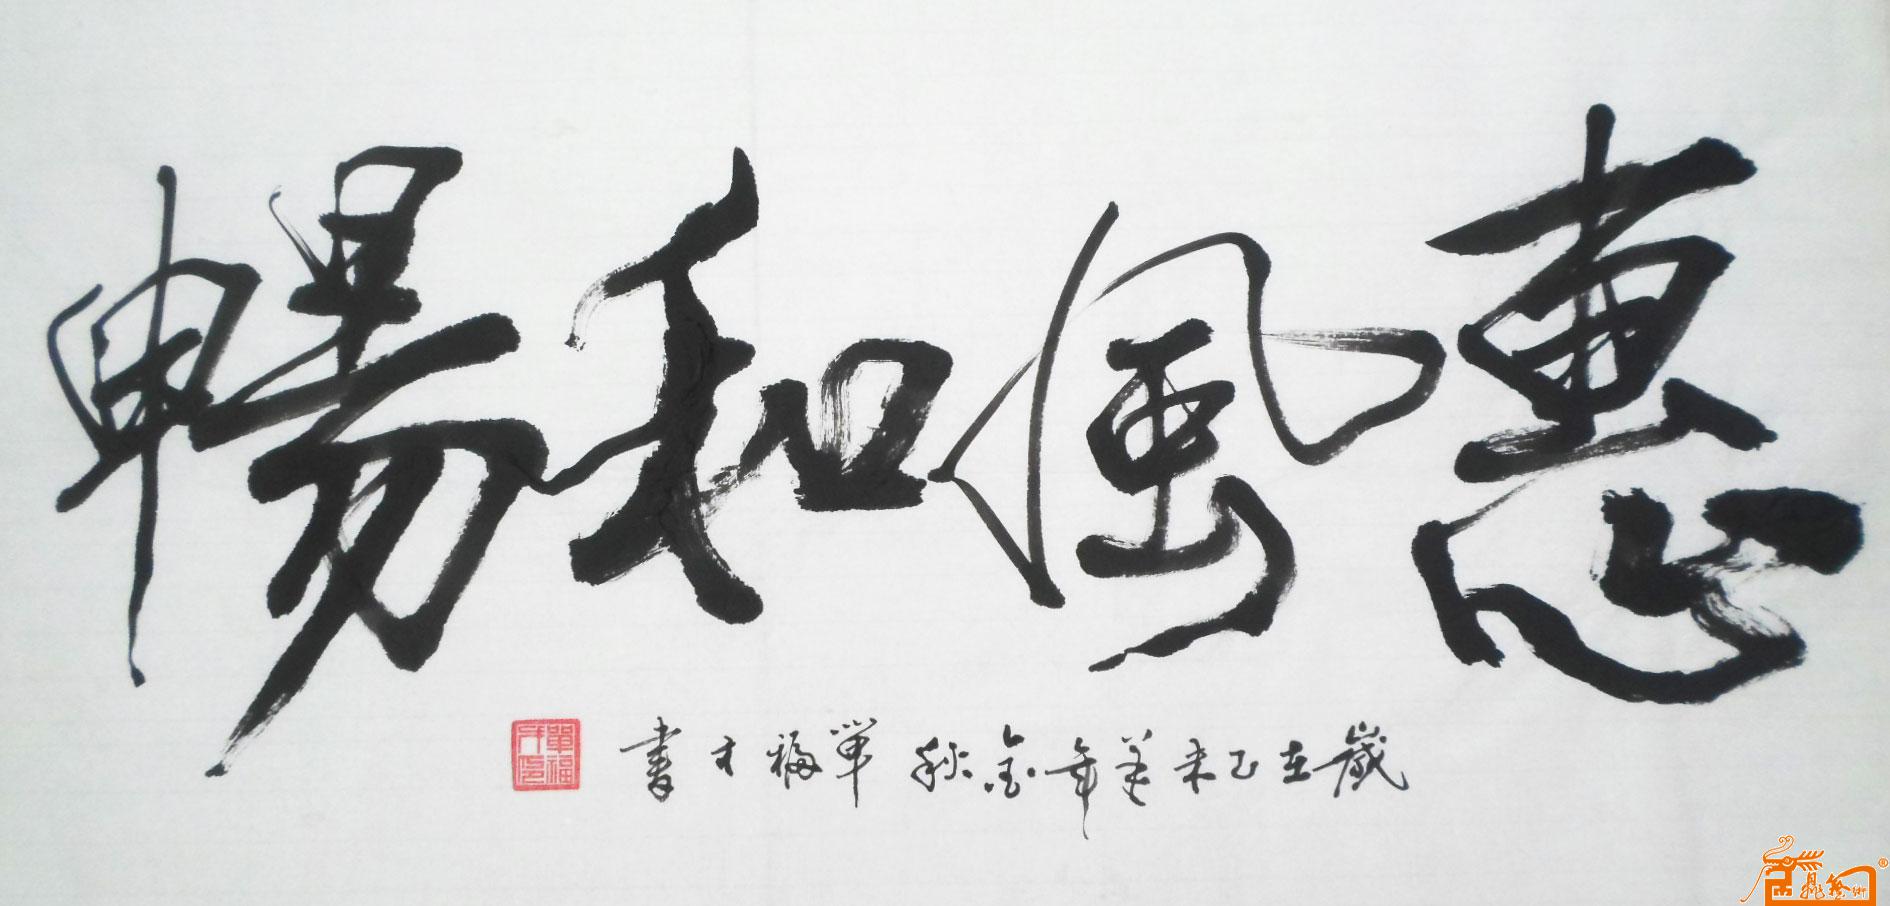 惠風和暢
歲在乙未羊年金秋 單福才書
單福才印